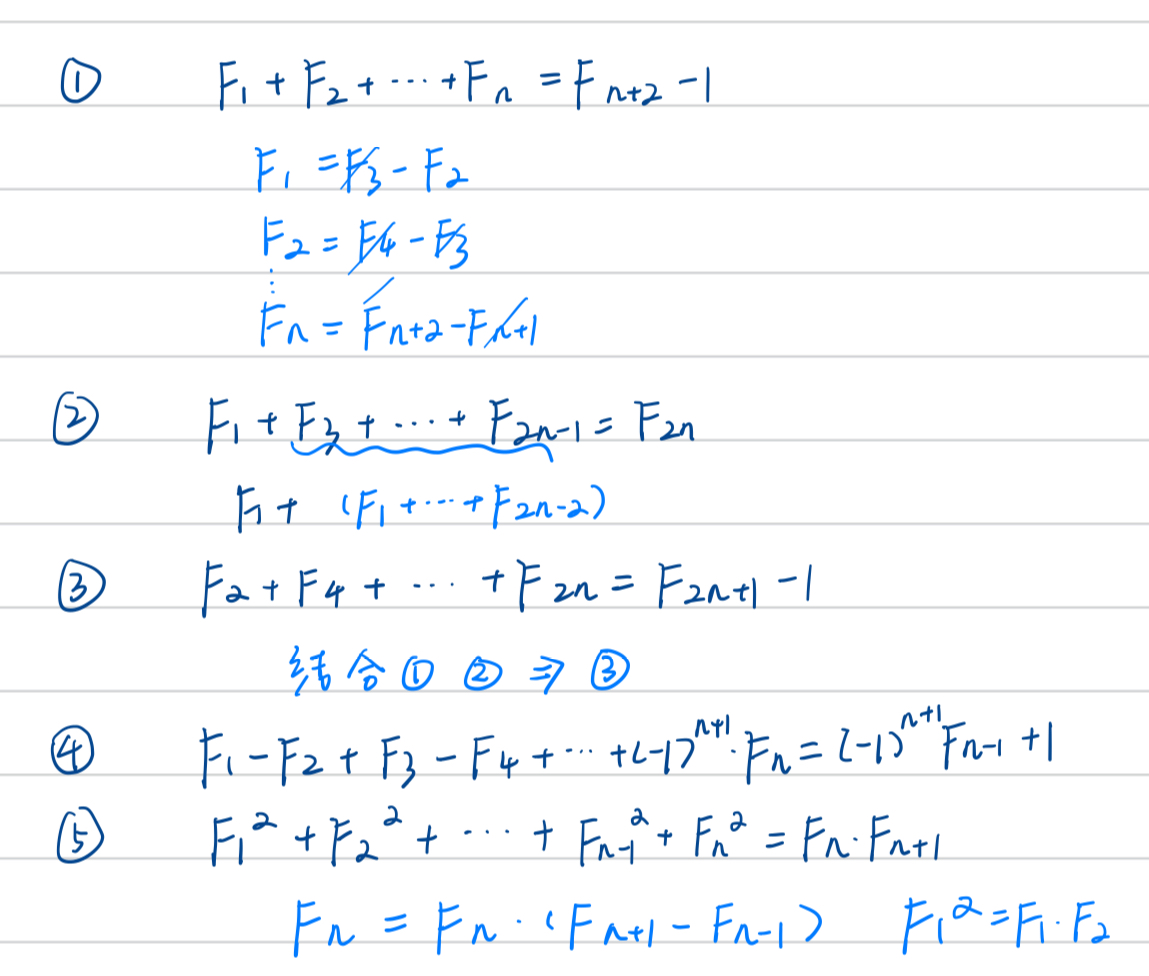 ① F₁ + F₂ + ⋯ + Fₙ = Fₙ₊₂ - 1
F₁ = F₃ - F₂
F₂ = F₄ - F₃
⋮
Fₙ = Fₙ₊₂ - Fₙ₊₁
② F₁ + F₃ + ⋯ + F₂ₙ₋₁ = F₂ₙ
F₁ + (F₁ + ⋯ + F₂ₙ₋₂)
③ F₂ + F₄ + ⋯ + F₂ₙ = F₂ₙ₊₁ - 1
结合 ① ② ⇒ ③
④ F₁ - F₂ + F₃ - F₄ + ⋯ + (-1)ⁿ⁺¹ · Fₙ = (-1)ⁿ⁺¹ Fₙ₋₁ + 1
⑤ F₁² + F₂² + ⋯ + Fₙ₋₁² + Fₙ² = Fₙ · Fₙ₊₁
Fₙ = Fₙ · (Fₙ₊₁ - Fₙ₋₁) F₁² = F₁ · F₂